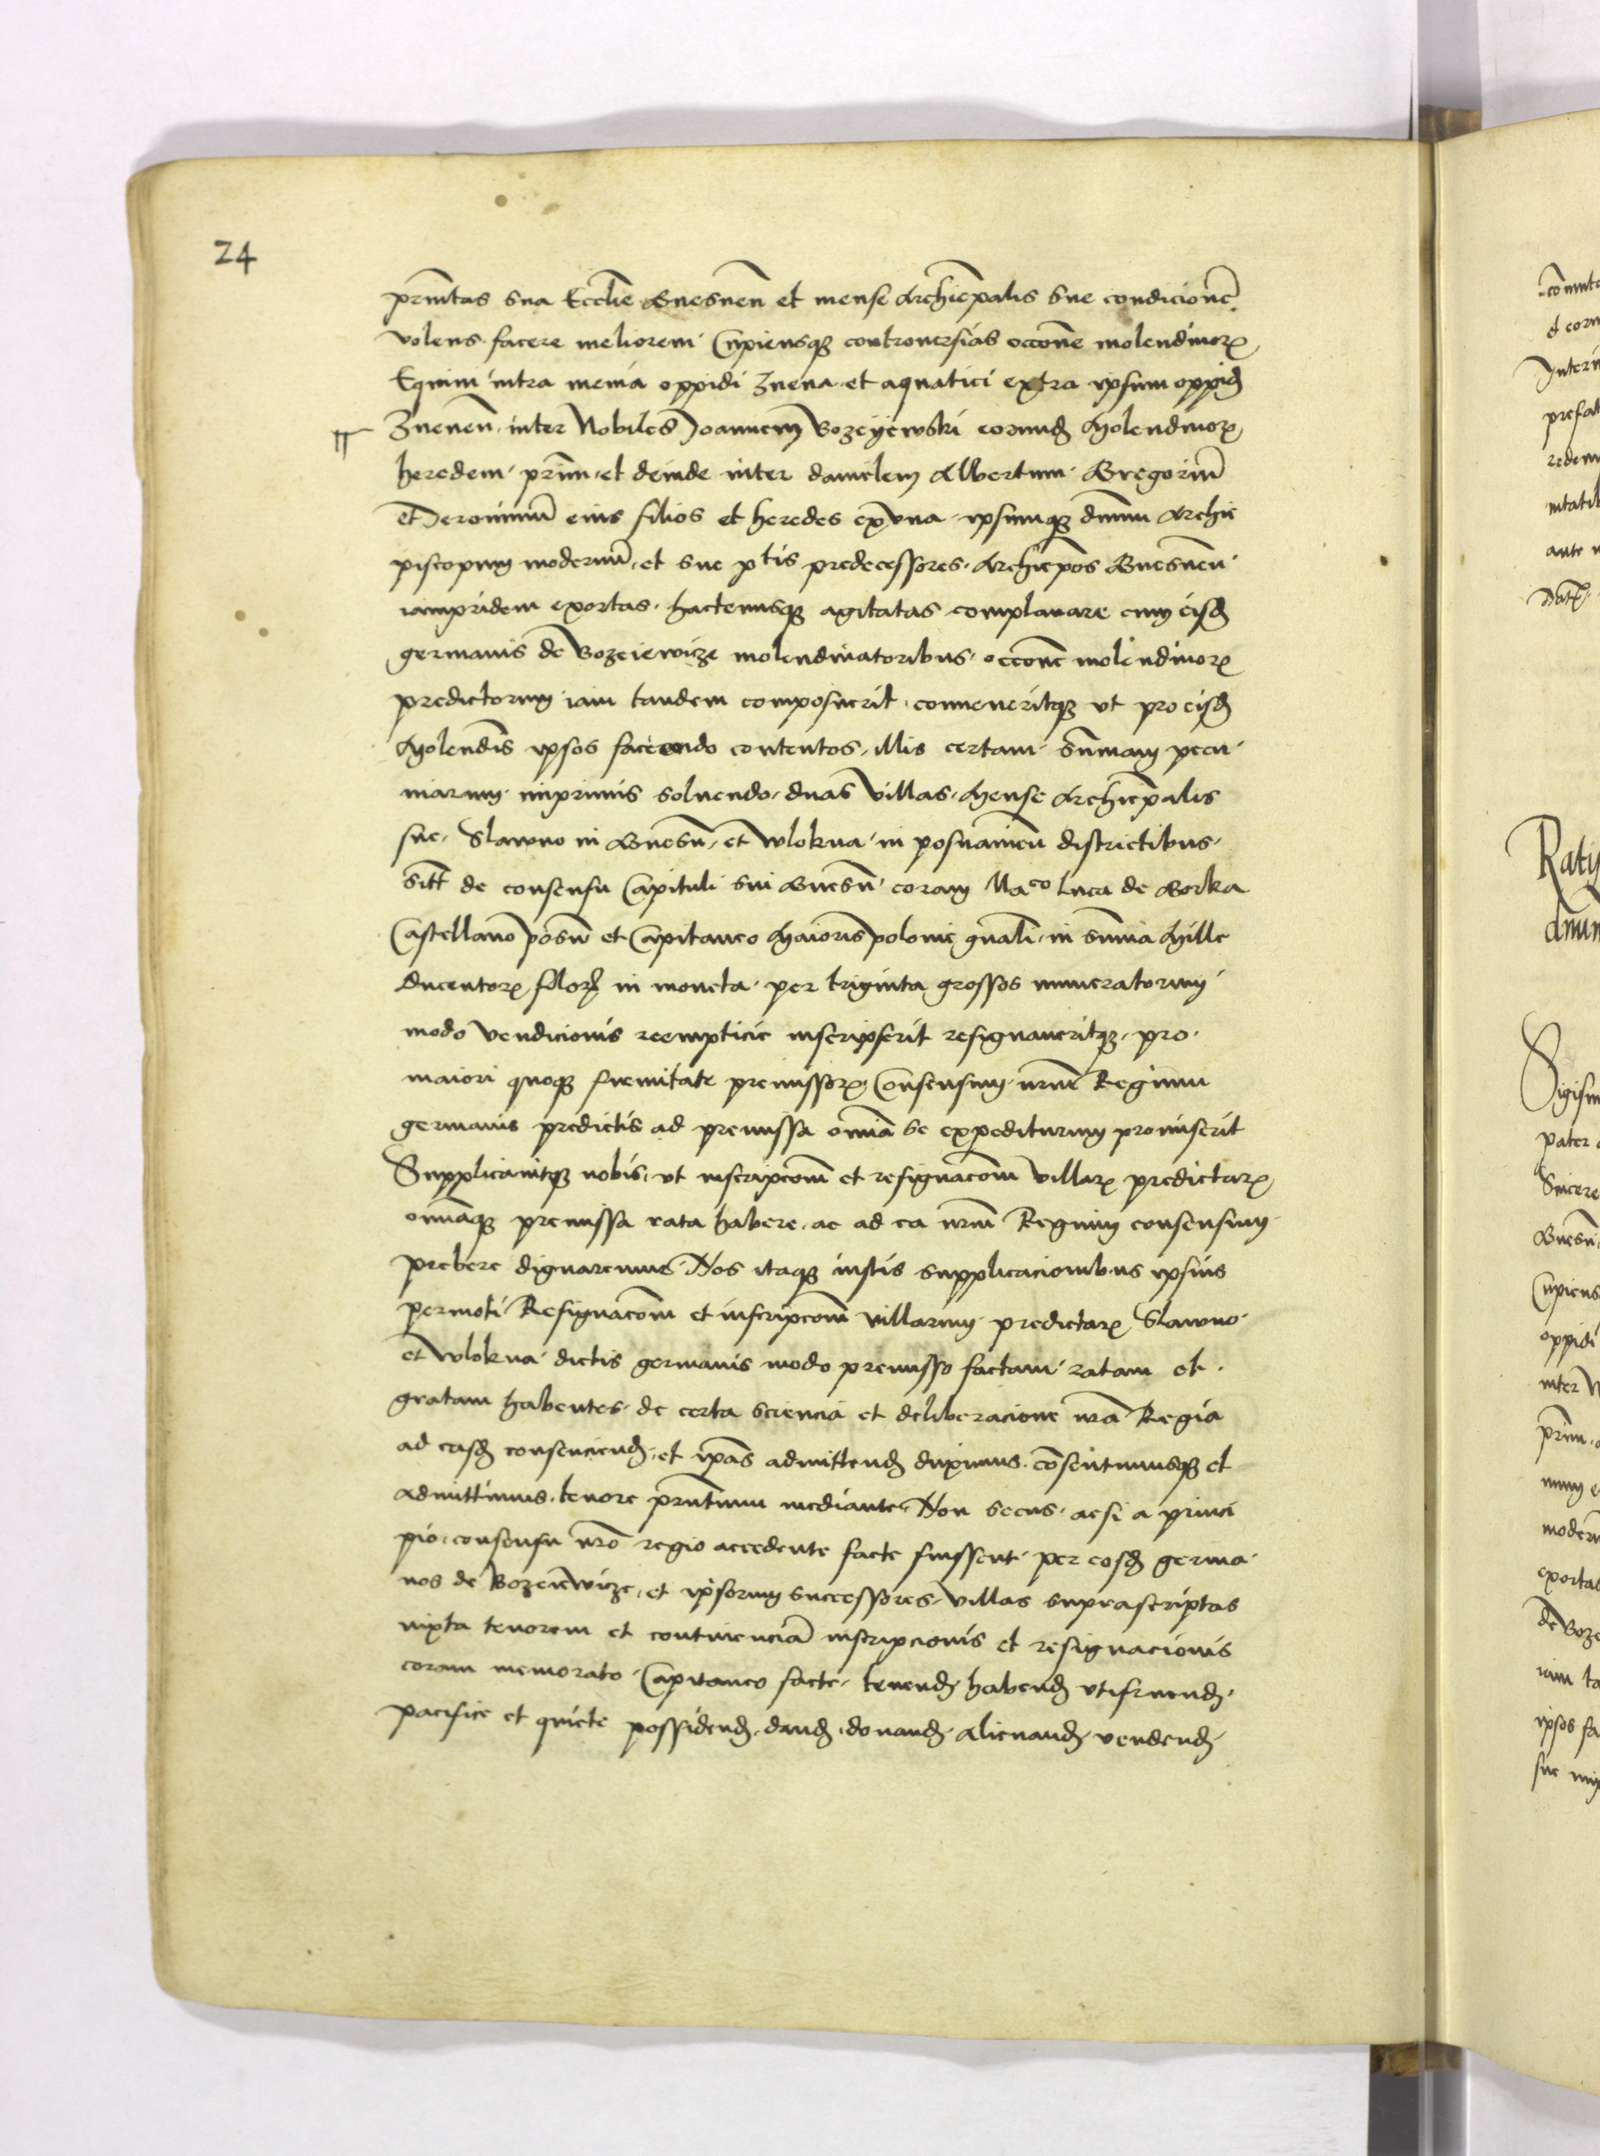 24
prñitas sua Ecclie Gnesneñ et mense Archiepalis sue condicionẽ
volens facere meliorem Cupiensqz controversias occone molendinorꝝ
Equini intra menia oppidi Znena et aquatici extra ipsum oppidꝫ
Zneneñ inter Nobiles Joannem Bozeyewski eorundꝫ Molendinorꝝ
heredem prim et deinde inter danielem Albertum Gregoriũ
et Jeronimũ eius filios et heredes ex una ipsumqz dnum Archie
piscopum modernũ et sue ptis predecessores Archiepos Gnesneñ
iampridem exortas hactenusqz agitatas complanare cum eisdꝫ
germanis de Bozeiewicze molendinatoribus occone molendinorꝝ
predictorum iam tandem composuerit conveneritqz ut pro eisdꝫ
Molendis ipsos faciendo contentos illis certam sũmam pecu
niarum inprimis solvendo duas villas Mense Archiepalis
sue Slawno in Gnesñ et Wlokna in posnanieñ districtibus
sitt de consensu Capituli sui Gnesñ coram Maco Luca de Gorka
Castellano posñ et Capitaneo Maioris polonie gnali in summa Mille
ducentorꝝ florꝝ in moneta per triginta grossos numeratorum
modo vendicionis reempticie inscripserit resignaveritqz pro
maiori quoqz firmitate premissorꝝ Consensum nrũm Regium
germanis predictis ad premissa omia se expediturum promiserit
Supplicavitqz nobis ut inscripcom et resignacom villarꝝ predictarꝝ
omiaqz premissa rata habere ac ad ea nrm Regium consensum
prebere dignaremur Nos itaqz iustis supplicacionibus ipsius
permoti Resignacom et inscripcom villarum predictarꝝ Slawno
et Wlokna dictis germanis modo premisso factam ratam et
gratam habentes de certa sciencia et deliberacione nra Regia
ad easdꝫ consenciendꝫ et ipas admittendꝫ duximus consentimusqz et
admittimus tenore prñtium mediante Non secus acsi a princi
pio consensu nro regio accedente facte fuissent per eosdꝫ germa
nos de Bozeiewicze et ipsorum successores villas suprascriptas
iuxta tenorem et continenciã inscripcionis et resignacionis
coram memorato Capitaneo facte tenendꝫ habendꝫ utifruendꝫ
pacifice et quiete possidendꝫ dandꝫ donandꝫ alienandꝫ vendendꝫ